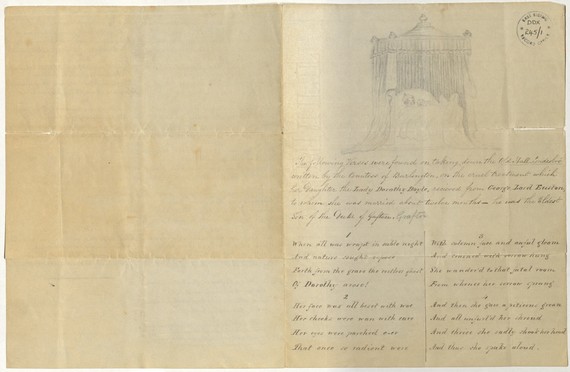 EAST RIDING
DDX
245/1
The following Verses were found on taking down the Old Hall
written by the Countess of Burlington, on the cruel treatment which
her Daughter the Lady Dorothy Boyle, received from George Lord Euston,
to whom she was married about twelve months — he was the Eldest
Son of the Duke of Grafton
1
When all was wrapt in sable night
And nature sought repose
Forth from the grave the restless ghost
Of Dorothy arose!
2
Her face was all beset with woe
Her cheeks were wan with care
Her eyes were parched over
That once so radient were
3
With solemn pace and
And
She wander'd to that fatal room
From whence her sprung
4
And then she gave a piteous groan
And all her shroud
And thrice she sadly shook her head
And thus she spake aloud.